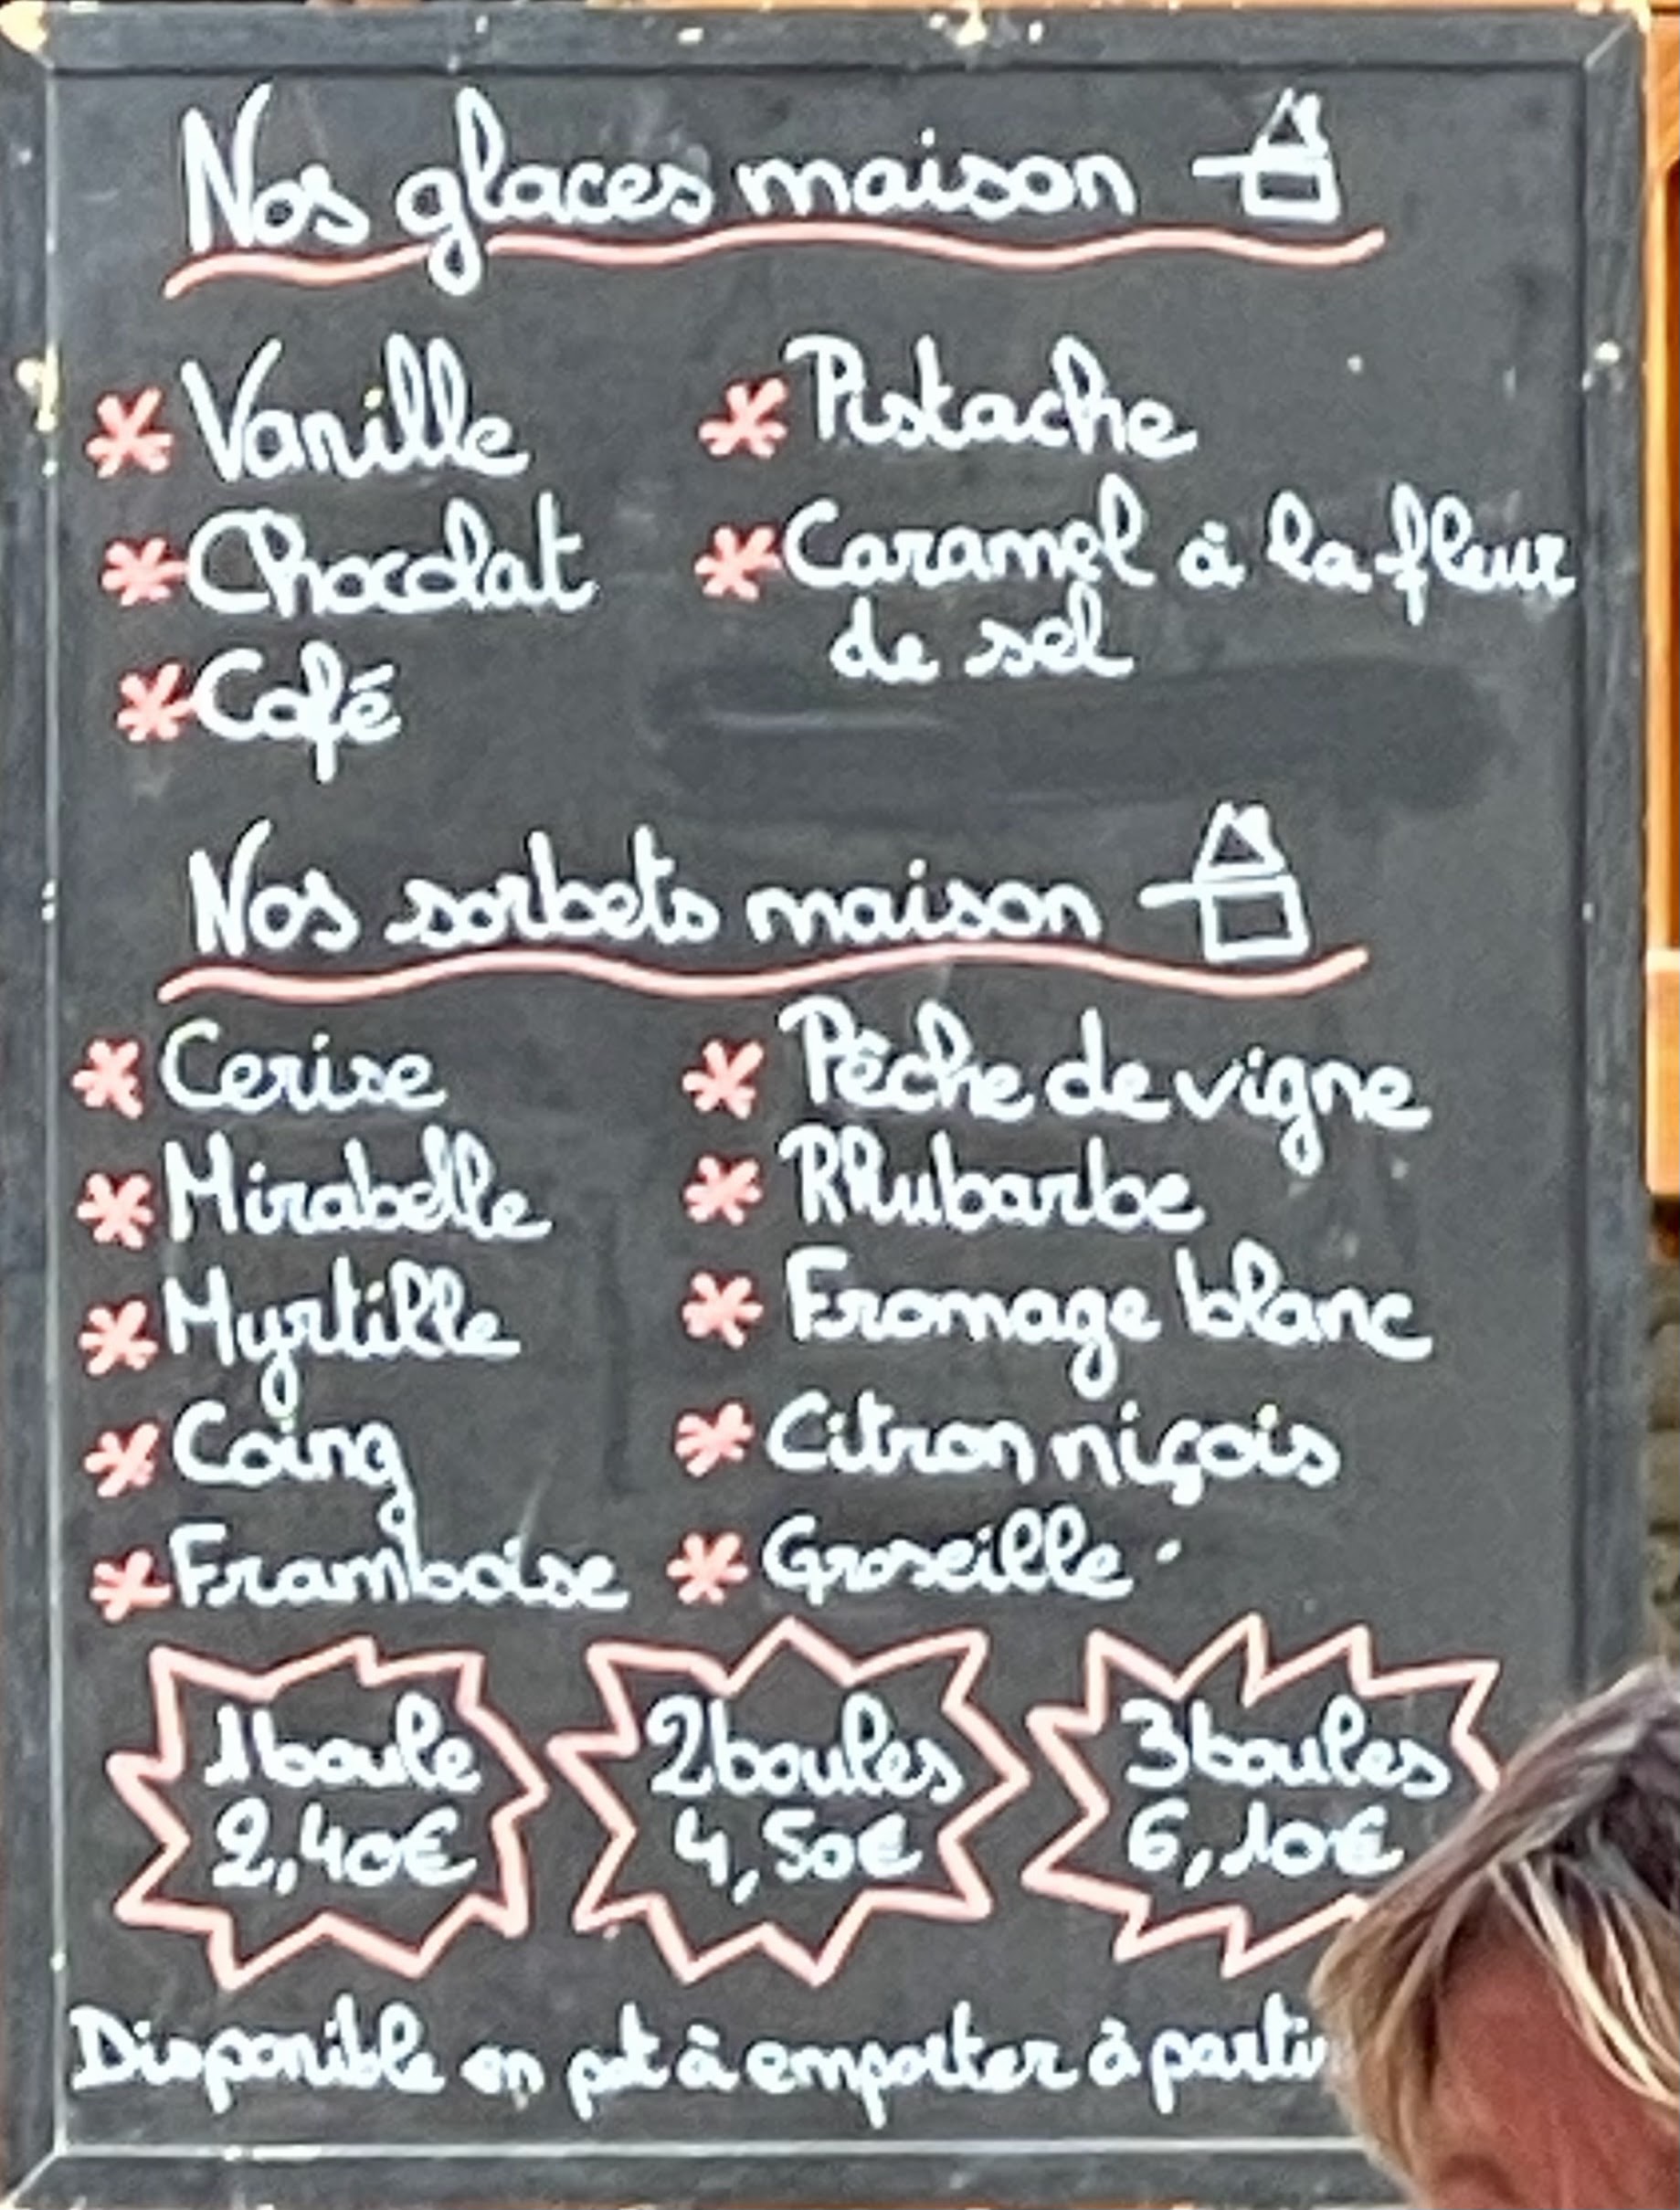 Nos glaces maison
Vanille
Chocolat
Café
Pistache
Caramel à la fleur
de sel
Nos sorbets maison
Cerise
Mirabelle
Myrtille
Coing
Framboise
Pêche de vigne
Rhubarbe
Fromage blanc
Citron niçois
Groseille
1 boule
2,40€
2 boules
4,50€
3 boules
6,10€
Disponible en pot à emporter à parti